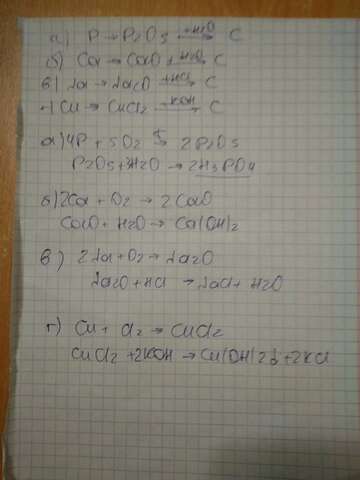 а) P → P2O5 +H2O→ C
б) Ca → CaO +H2O→ C
в) Na → Na2O +HCl→ C
г) Cu → CuCl2 +KOH→ C
а) 4P + 5O2 → 2P2O5
P2O5 + 3H2O → 2H3PO4
б) 2Ca + O2 → 2CaO
CaO + H2O → Ca(OH)2
в) 2Na + O2 → Na2O
Na2O + HCl → NaCl + H2O
г) Cu + Cl2 → CuCl2
CuCl2 + 2KOH → Cu(OH)2↓ + 2KCl